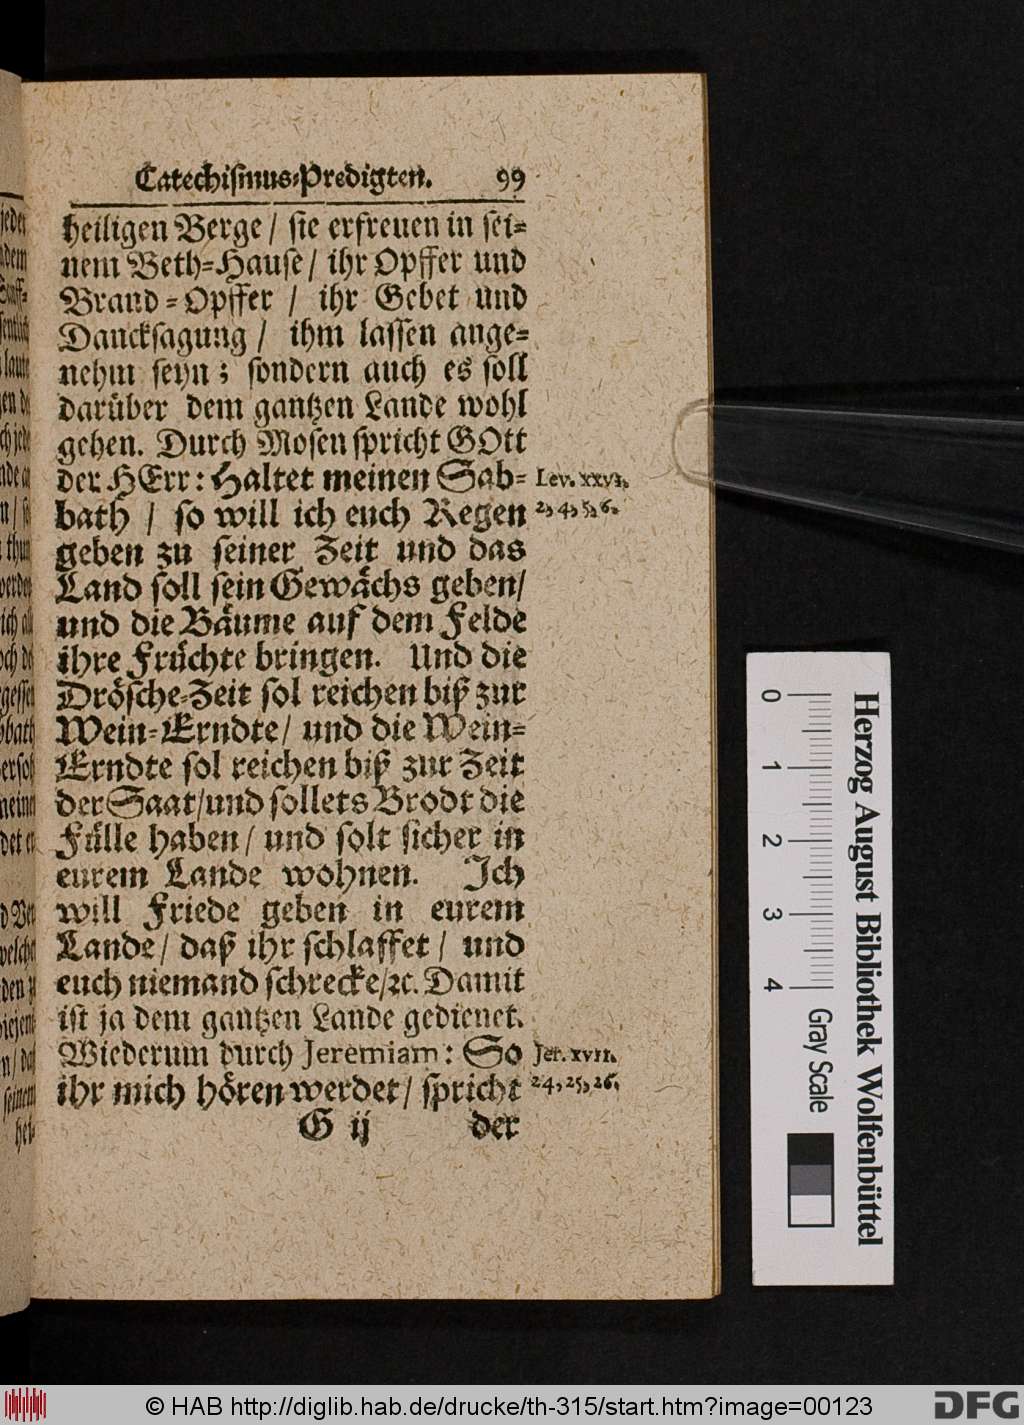 Catechismus-Predigten. 99
heiligen Berge / sie erfreuen in sei-
nem Beth-Hause / ihr Opffer und
Brand-Opffer / ihr Gebet und
Dancksagung / ihm lassen ange-
nehm seyn; sondern auch es soll
darüber dem gantzen Lande wohl
gehen. Durch Mosen spricht GOtt
der HErr: Haltet meinen Sab-
bath / so will ich euch Regen
geben zu seiner Zeit und das
Land soll sein Gewächs geben/
und die Bäume auf dem Felde
ihre Früchte bringen. Und die
Drösche-Zeit sol reichen biß zur
Wein-Erndte / und die Wein-
Erndte sol reichen biß zur Zeit
der Saat/und sollets Brodt die
Fülle haben / und solt sicher in
eurem Lande wohnen. Ich
will Friede geben in eurem
Lande / daß ihr schlaffet / und
euch niemand schrecke/ꝛc. Damit
ist ja dem gantzen Lande gedienet.
Wiederum durch Jeremiam: So
ihr mich hören werdet / spricht
G ij der
Lev. xxvi.
2, 4, 5, 6.
Jer. xvii.
24, 25, 26.
Herzog August Bibliothek Wolfenbüttel
0 1 2 3 4 Gray Scale
© HAB http://diglib.hab.de/drucke/th-315/start.htm?image=00123
DFG